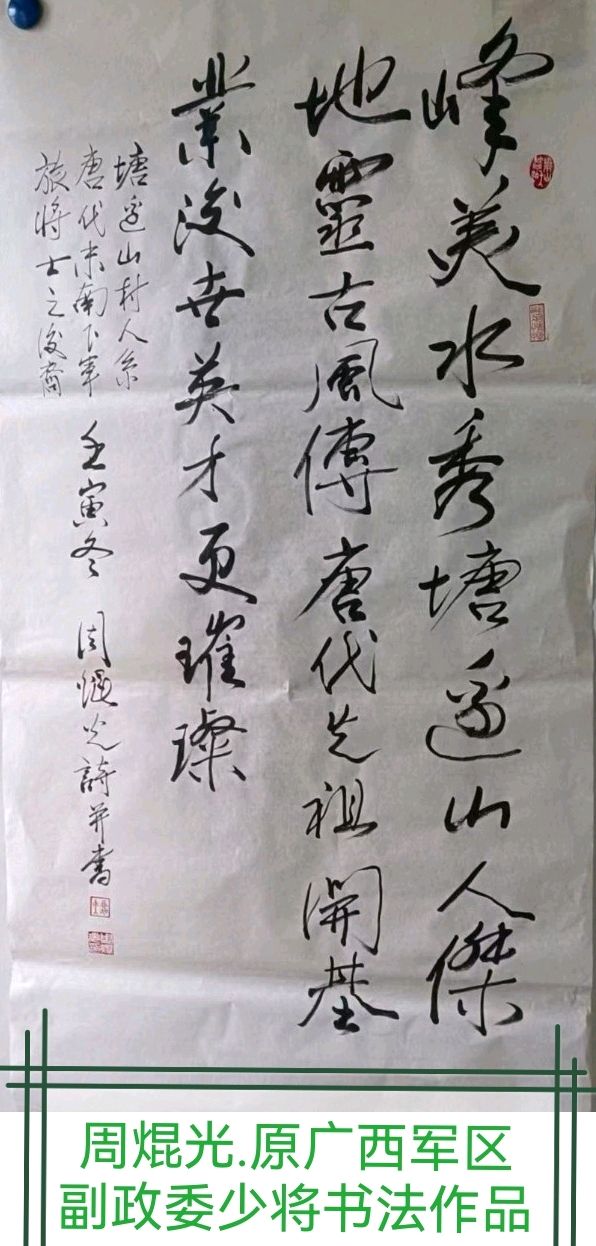 峰美水秀塘邊山人傑
地靈古風傳唐代先祖開基
業後世英才更璀璨
塘邊山村人系
唐代末南下軍
旅将士之後裔
壬寅冬 周焜光詩并書
周焜光.原广西军区
副政委少将书法作品